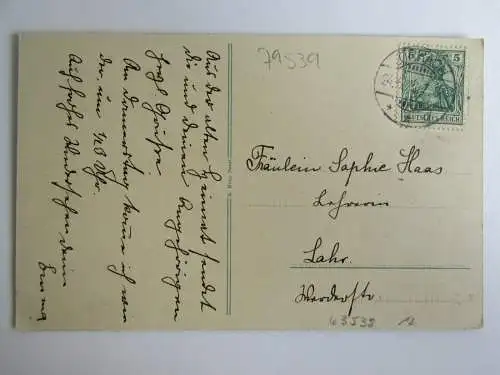 Aus der alten Heimat sendet
dir und deinen Angehörigen
herzl. Grüsse.
An Donnerstag komme ich wie
der, um ½8 Uhr.
Auf frohes Wiedersehen dein
Emma
79539
5
DEUTSCHES REICH
Fräulein Sophie Haas
Lehrerin
Lahr.
Werderstr.
43538